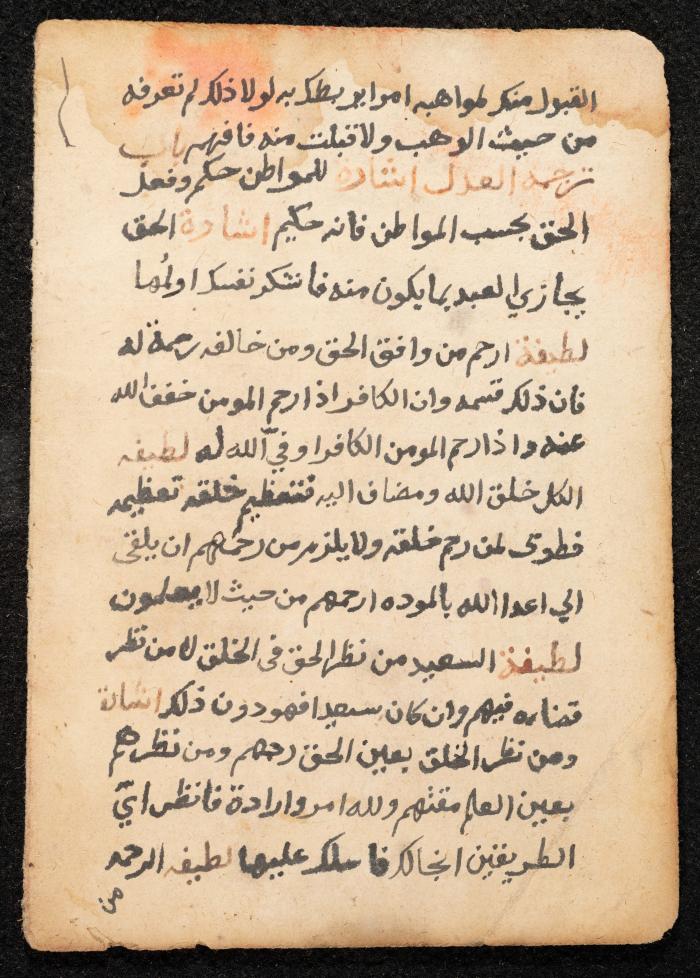 القبول منك لمواهبه امرا يربطك به لولا ذلك لم تعرفه
من حيث الوهب ولا قبلت منه فافهم باب
ترجمة العدل اشارة للمواطن حكم وفعل
الحق بحسب المواطن فانه حكيم اشارة الحق
يجازي العبد بما يكون منه فاشكر نفسك او لمها
لطيفة ارحم من وافق الحق ومن خالفه رحمة له
فان ذلك قسمه وان الكافر اذا رحم المومن خفف الله
عنه واذا رحم المومن الكافر اوفي الله له لطيفه
الكل خلق الله ومضاف اليه فتعظيم خلقه تعظيمه
فطوبى لمن رحم خلقه ولا يلزم من رحمهم ان يلقى
الي اعدا الله بالموده ارحمهم من حيث لا يعلمون
لطيفة السعيد من نظر الحق في الخلق لا من نظر
قضاءه فيهم وان كان سعيدا فهو دون ذلك اشارة
ومن نظر الخلق بعين الحق رحمهم ومن نظرهم
بعين العلم مقتهم ولله امر وارادة فانظر اي
الطريقين انجا لك فاسلك عليها لطيفه الرحمه
من